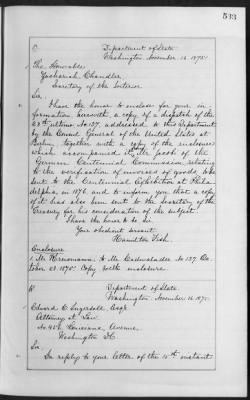 533
Department of State
Washington November 16 1875
The Honorable
Zachariah Chandler
Secretary of the Interior
Sir
I have the honor to enclose for your in-
formation herewith, a copy of a dispatch of the
23rd ultimo No. 137, addressed to this Department
by the Consul General of the United States at
Berlin, together with a copy of the enclosure
which accompanied it, Mr. Jacobi of the
German Centennial Commission relating
to the verification of invoices of goods to be
sent to the Centennial Exhibition at Phila-
delphia in 1876 and to inform you that a copy
of it has also been sent to the Secretary of the
Treasury for his consideration of the subject.
I have the honor to be Sir
Your obedient servant
Hamilton Fish
Enclosure
Mr. to Mr. Cadwalader No 137 Oc-
tober 23. 1875. Copy with enclosure
Department of State
Washington. November 16 1875.
Edward C. Ingersoll, Esqr
Attorney at Law
Louisiana Avenue
Washington D.C.
Sir
In reply to your letter of the 15th instant